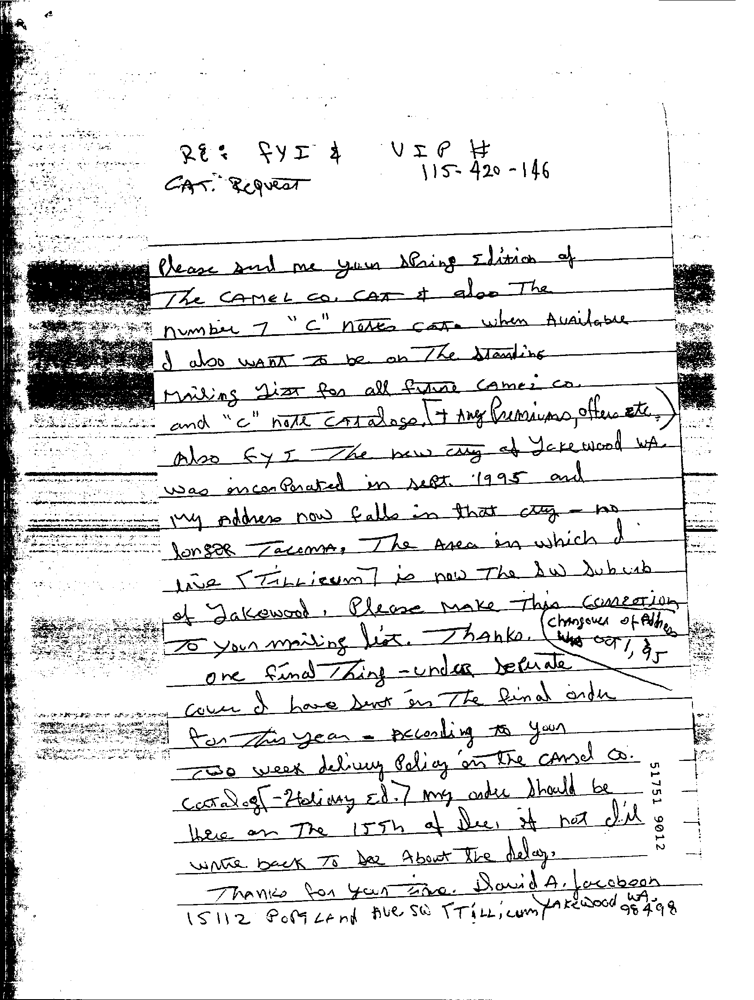 RE: FYI & VIP #
CAT. Request 115-420-146
Please send me your Spring Edition of
The CAMEL CO. CAT & also The
number 7 "C" notes CAT. when Available
I also WANT TO be on The Standing
Mailing List for all future CAMEL CO.
and "C" note CATALOGS. [+ Any Premiums, offers etc.]
Also FYI The new city of Lakewood WA.
was incorporated in Sept. 1995 and
my Address now falls in that city - no
longer TACOMA, The Area in which I
live [TILLICUM] is now The SW Suburb
of Lakewood. Please MAKE This correction
To your mailing list. Thanks. (changover of Address
was OCT 1, 95
one Final Thing - under seperate
cover I have sent in The final order
for This year - According to your
Two week delivery Policy in the CAMEL CO.
Catalog [-Holiday Ed.] my order should be
here on The 15Th of Dec, if not I'll
write back To See About The delay.
Thanks for your Time. David A. Jacobson
15112 PORTLAND AVE SW [TILLICUM] LAKEWOOD WA. 98498
51751 9012